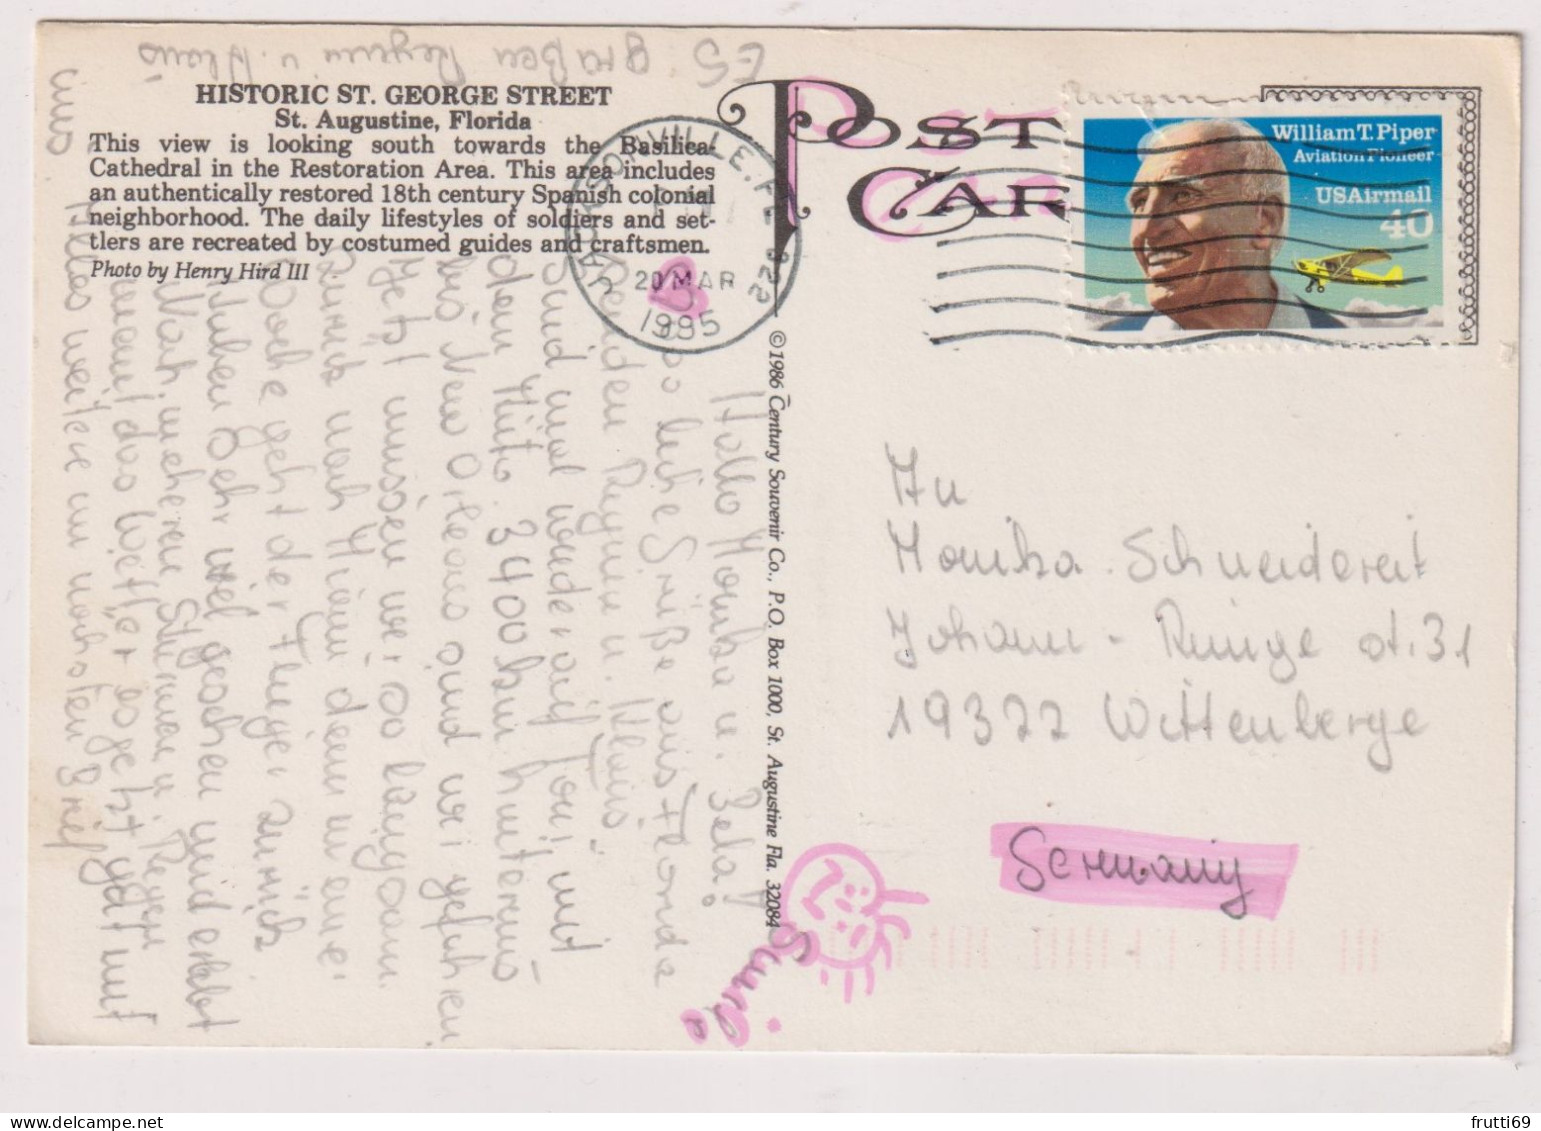 HISTORIC ST. GEORGE STREET
St. Augustine, Florida
This view is looking south towards the Basilica-
Cathedral in the Restoration Area. This area includes
an authentically restored 18th century Spanish colonial
neighborhood. The daily lifestyles of soldiers and set-
tlers are recreated by costumed guides and craftsmen.
Photo by Henry Hird III
POST
CAR
JACKSONVILLE, FL 322
20 MAR
1995
William T. Piper
Aviation Pioneer
USAirmail
40
© 1986 Century Souvenir Co., P.O. Box 1000, St. Augustine Fla. 32084
Hallo Monika u. Bela!
liche Grüße aus Florida
senden Regina u. Klaus
Sind mal wieder auf Tour mit
dem Auto. 3400 km hinterms
bis New Orleans sind wir gefahren
Jetzt müssen wir so langsam
zurück nach Miami denn in einer
Woche geht der Flieger zurück
Haben sehr viel gesehen und erlebt
Nach mehreren Stürmen u. Regen
meint das Wetter es jetzt gut mit
uns
Alles weitere im nächsten Brief
Es grüßen Regina u. Klaus
An
Monika Schneidereit
Johann-Runge St. 31
19322 Wittenberge
Germany
frutti69